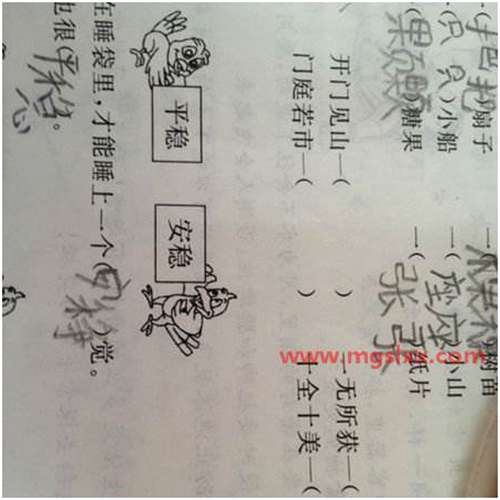 一(把)扇子 一(棵棵)树苗
(只 只)小船 一(座座)小山
(果颗)糖果 一(张)纸片
开门见山—( ) 一无所获—(
门庭若市—( ) 十全十美—(
平稳 安稳
在睡袋里，才能睡上一个( )觉。
也很(平稳)。